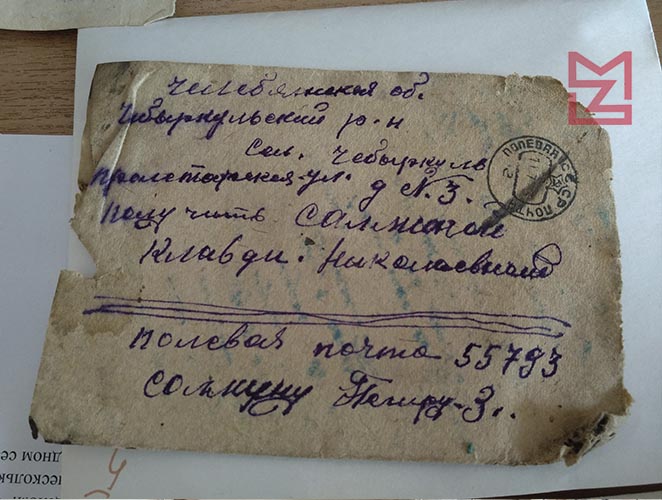 Челябинская об.
Чебыркульский р-н
Сел. Чебыркуль
Пролетарская ул. д №.3.
Получить Салниной
Клавди. Николаевной
полевая почта 55793
Салкину Петру-З..
ПОЛЕВАЯ ПОЧТА СССР